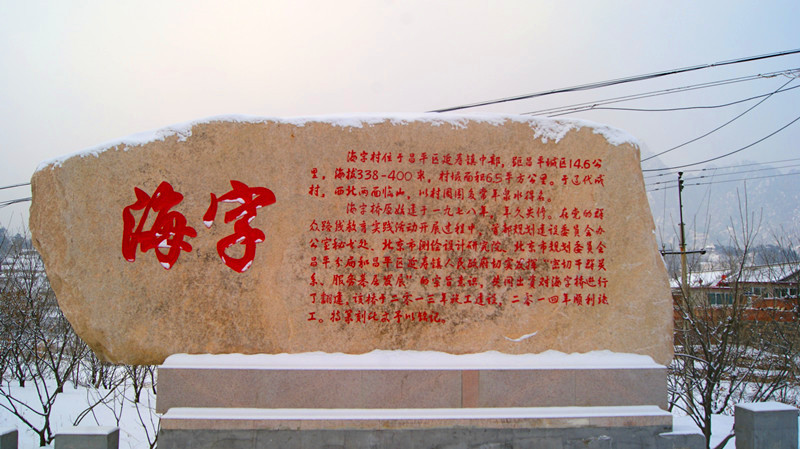 海字
海字村位于昌平区延寿镇中部，距昌平城区14.6公
里，海拔338-400米，村域面积6.5平方公里。于辽代成
村，西北两面临山，以村周围及常年泉水得名。
海字桥原始建于一九七八年，年久失修。在党的群
众路线教育实践活动开展过程中，首都规划建设委员会办
公室秘书处、北京市测绘设计研究院、北京市规划委员会
昌平分局和昌平区延寿镇人民政府切实发挥“密切干群关
系、服务基层发展”的宗旨意识，共同出资对海字桥进行
了翻建，该桥于二零一三年施工建设，二零一四年顺利竣
工。特篆刻此文予以铭记。